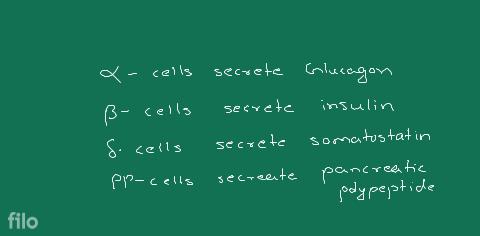 α- cells secrete Glucagon
β- cells secrete insulin
δ. cells secrete somatostatin
PP-cells secreate pancreatic
polypeptide
filo